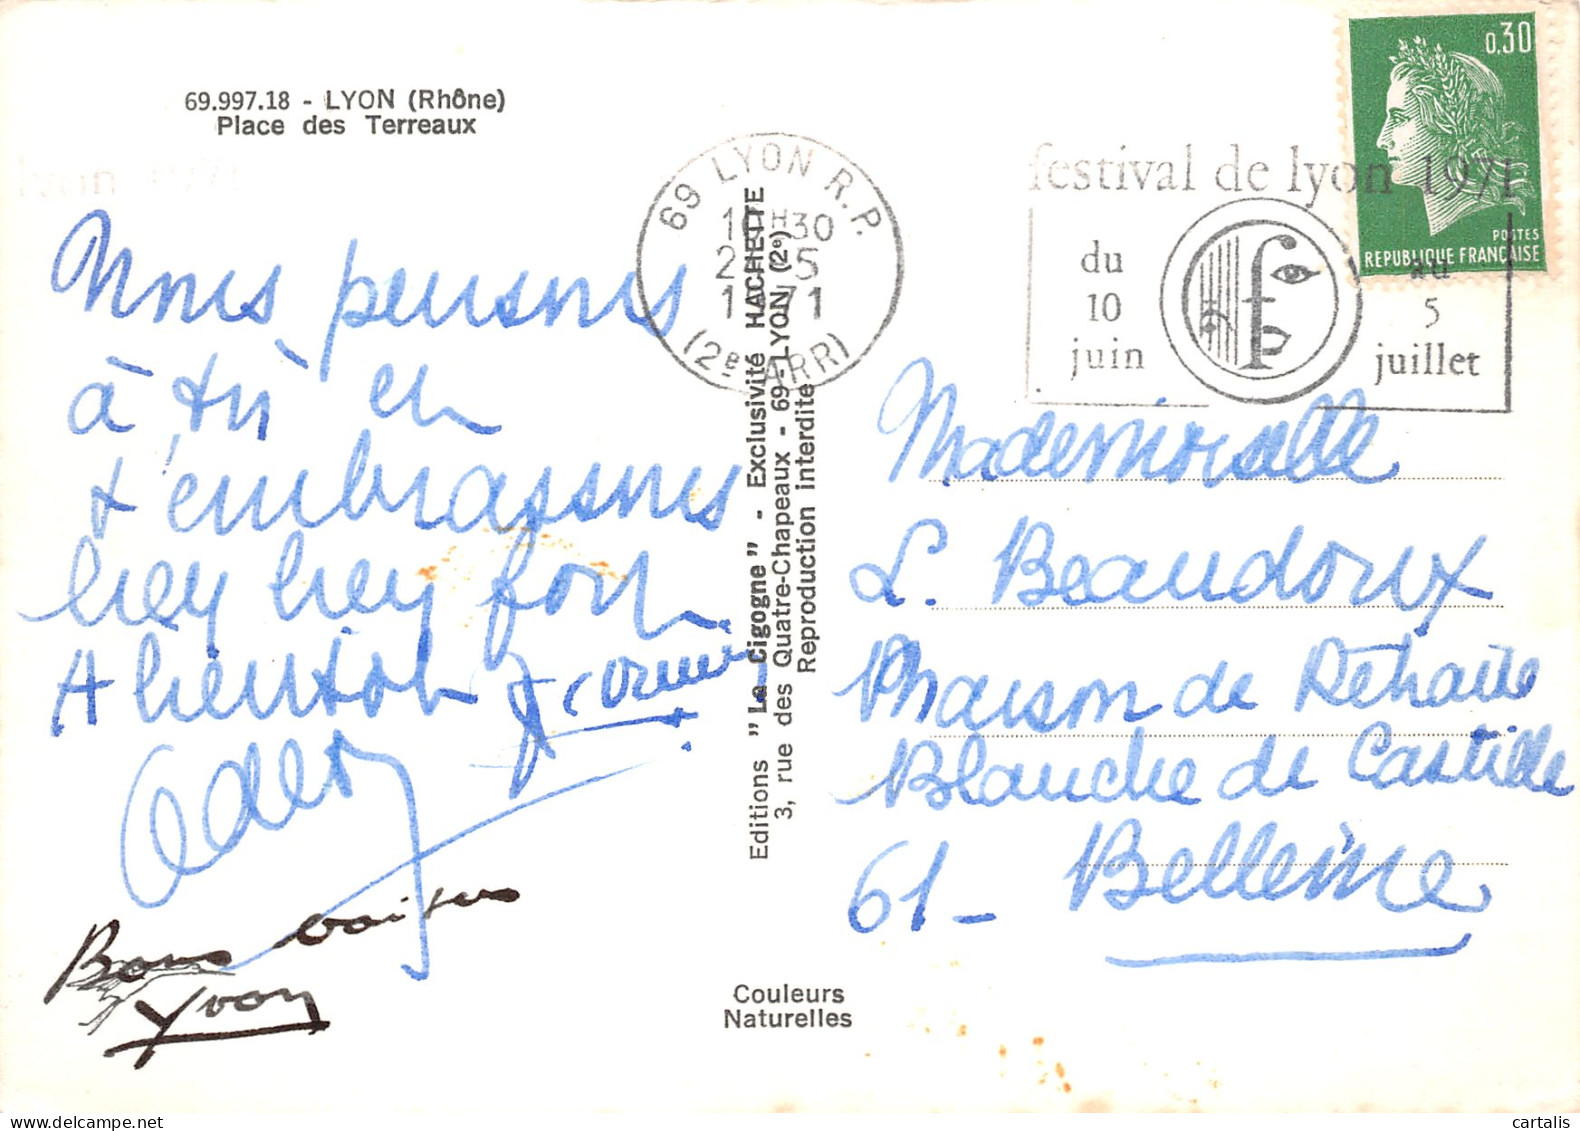 69.997.18 - LYON (Rhône)
Place des Terreaux
Nous pensons
à toi et
t'embrassons
bien bien fort
A bientôt
Bons baisers
Yvon
69 LYON R.P.
30
5
1971
(2e ARR)
festival de lyon 1971
du
10
juin
au
5
juillet
0,30
POSTES
REPUBLIQUE FRANÇAISE
Editions "La Cigogne" - Exclusivité HACHETTE
3, rue des Quatre-Chapeaux - 69 - LYON (2e)
Reproduction interdite
Mademoiselle
L. Beaudoux
Maison de Retraite
Blanche de Castille
61 - Bellême
Couleurs
Naturelles
cartalis